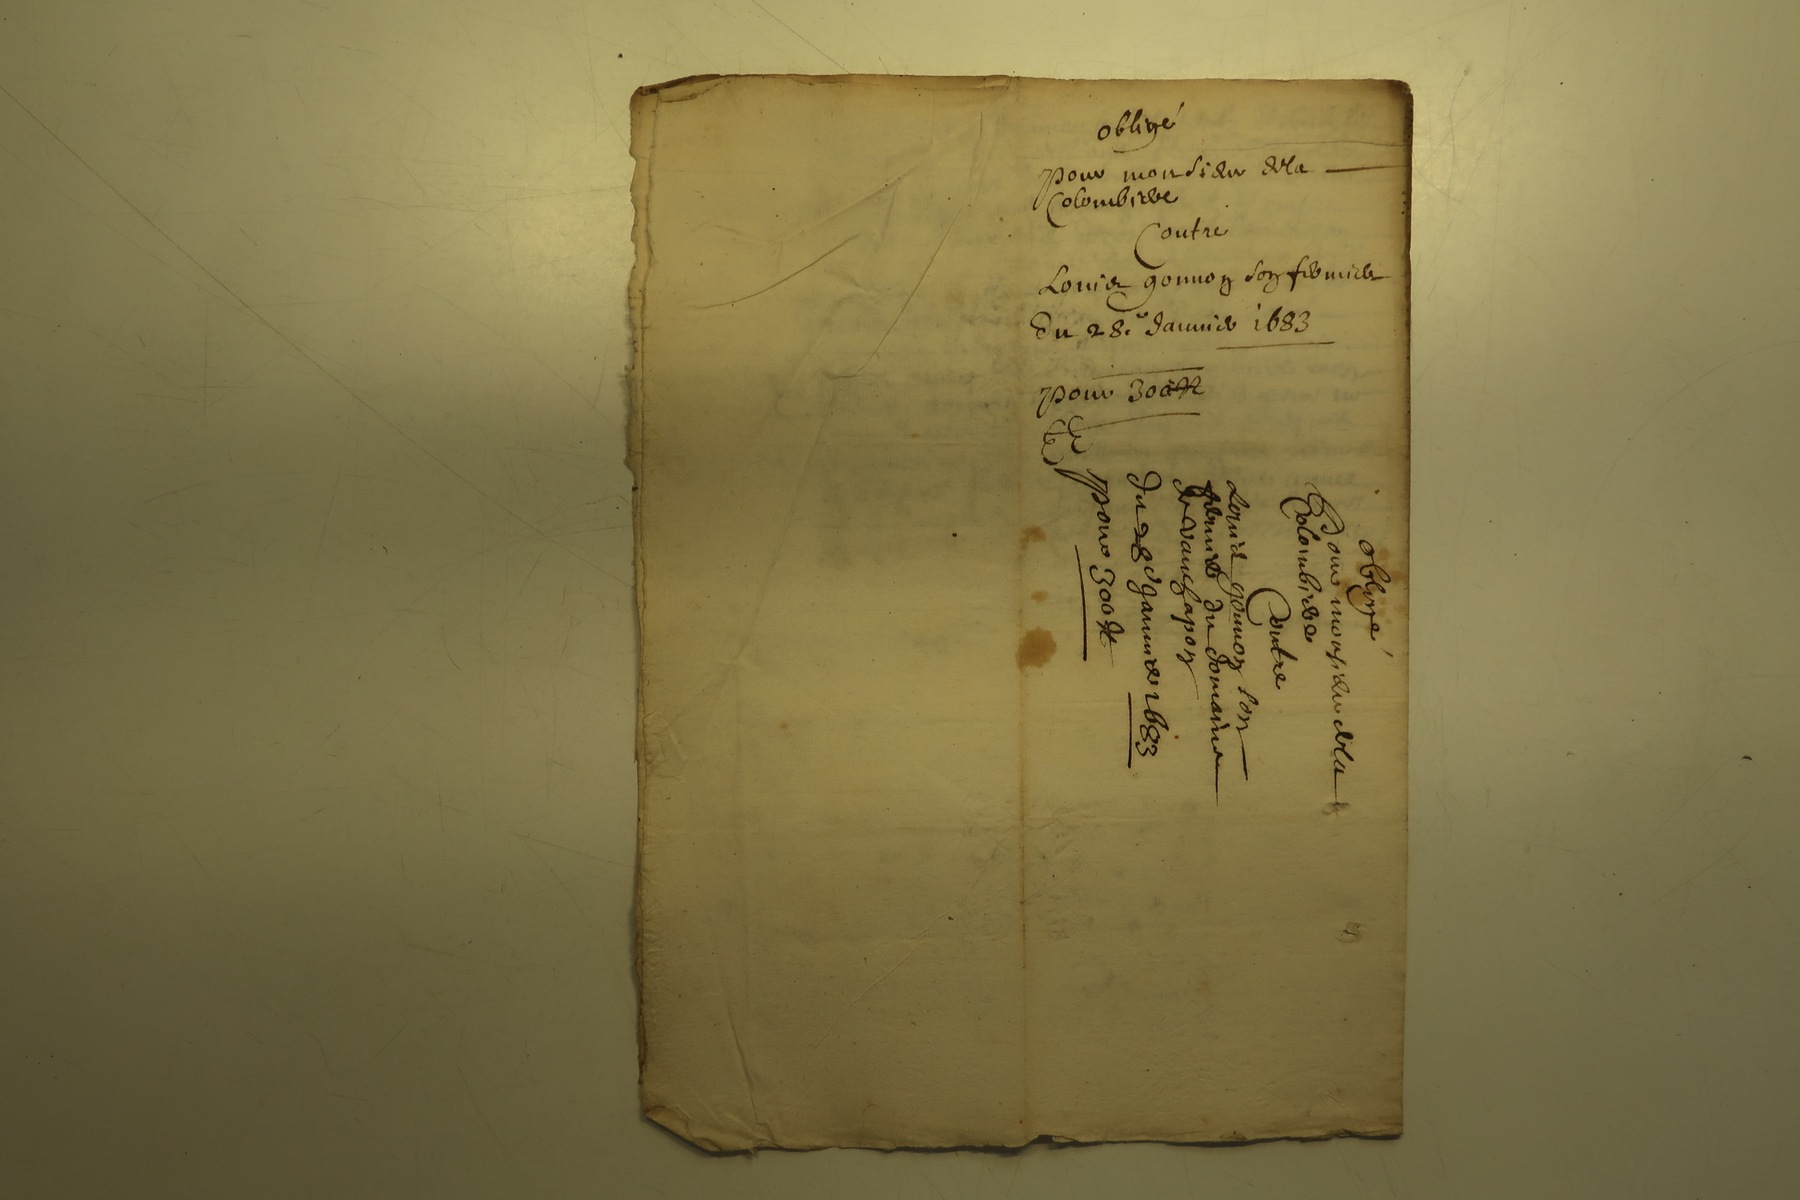 obligé
pour monsieur dela
Colombiere
Contre
Louis gonnon son fermier
Du 28.e Janvier 1683
pour 300lt
obligé
Pour monsieur dela
Colombiere
Contre
Louis gonnon son
fermier du domaine
du 28e Janvier 1683
pour 300lt